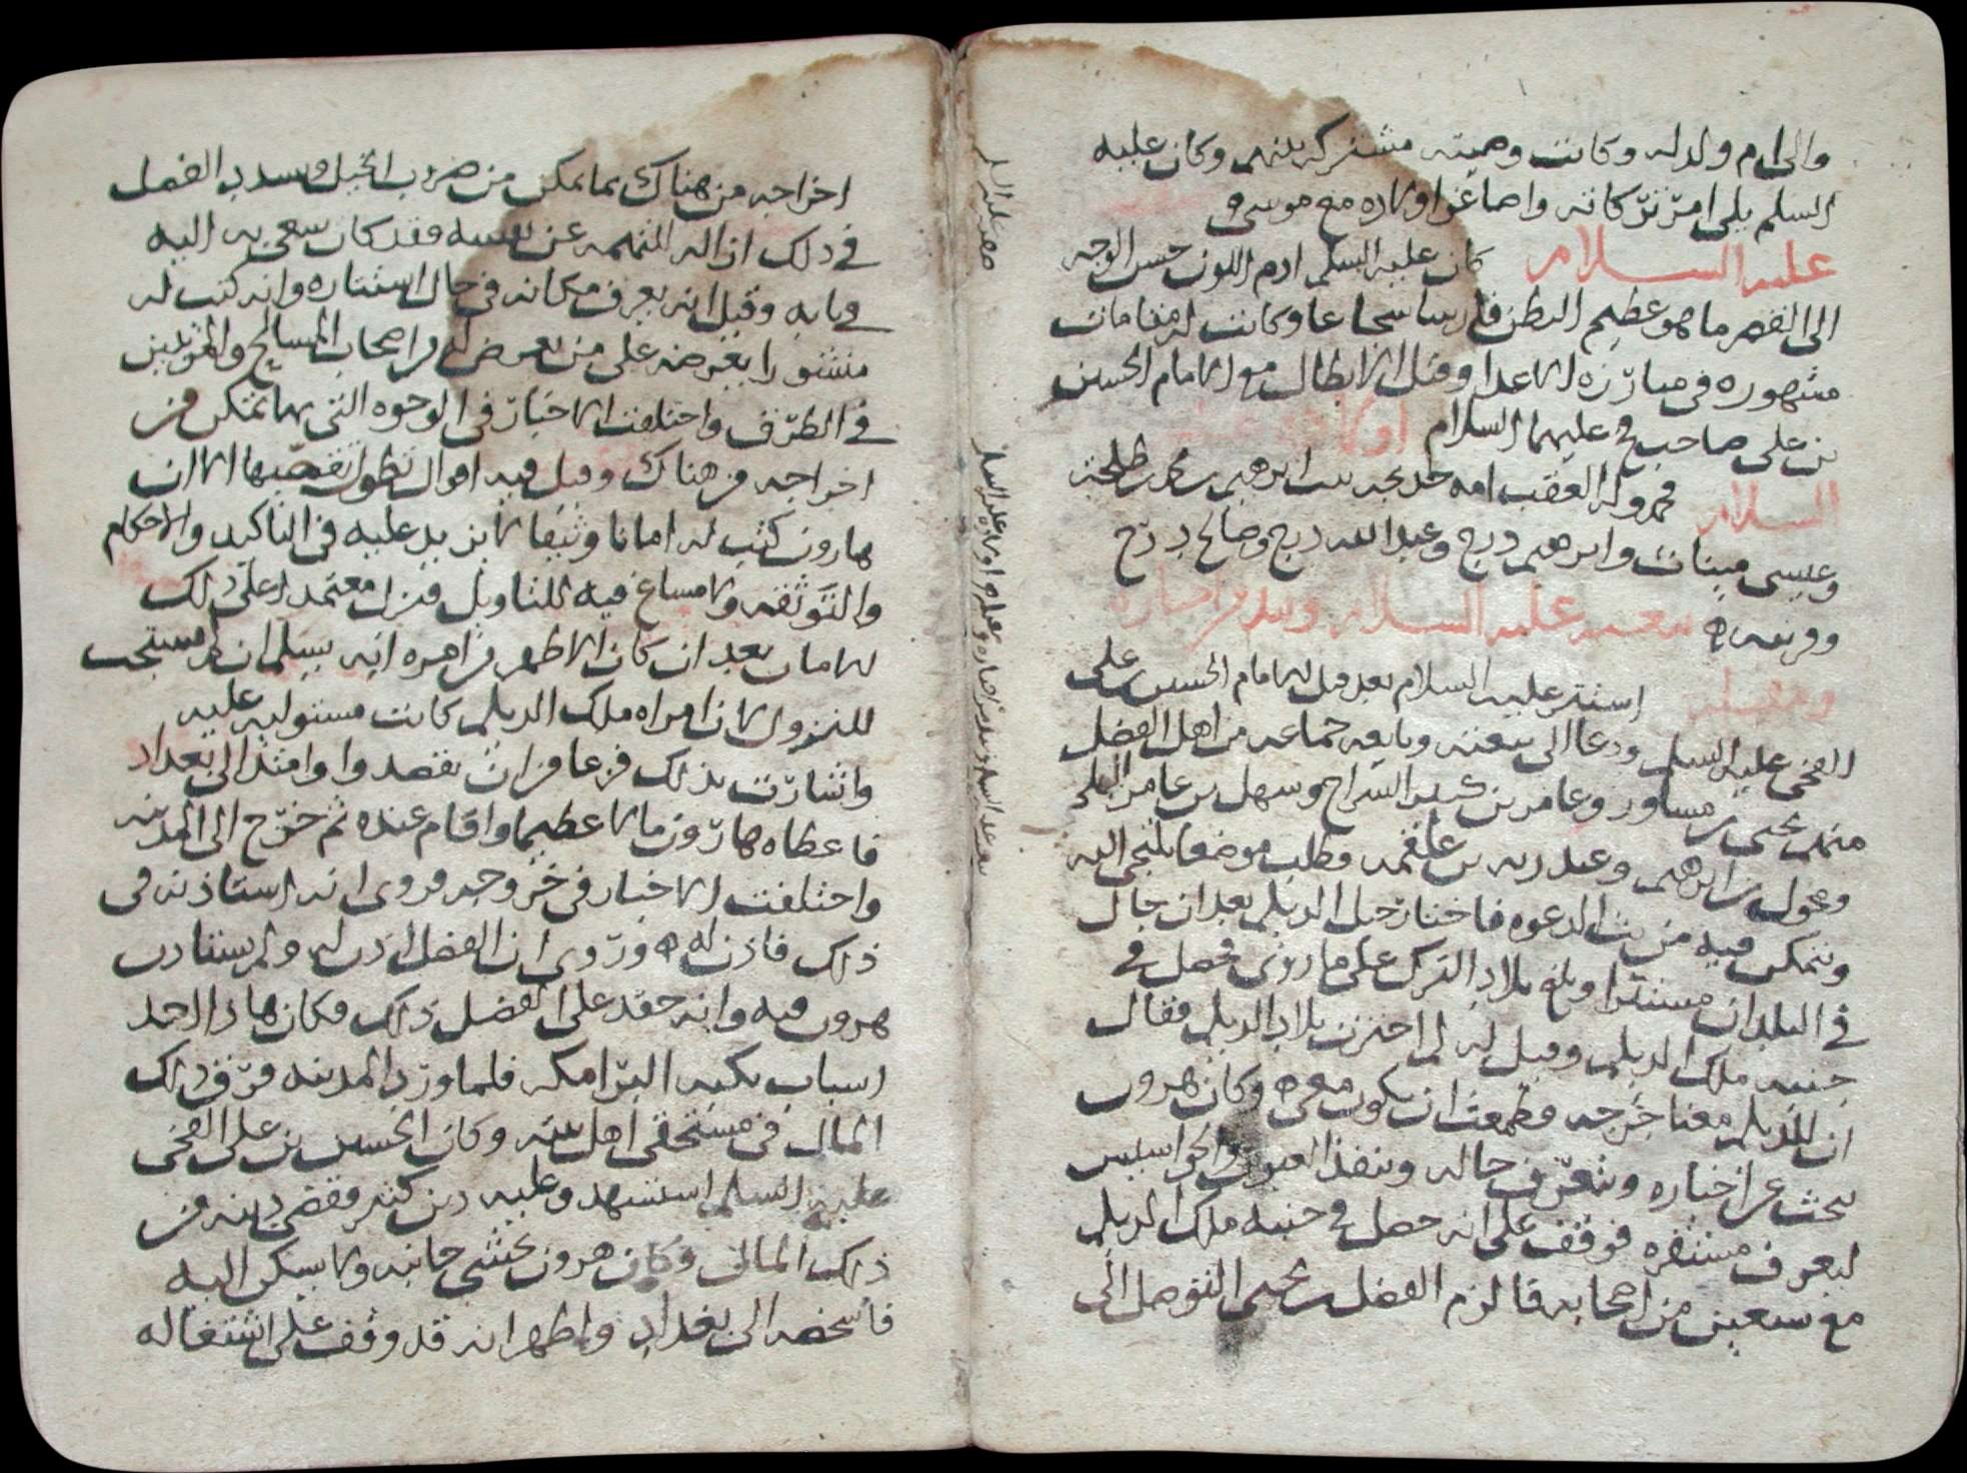 والى ام ولد له وكانت وصيته مشتركه بينهم وكان عليه
السلم يلي امر تركاته واصاغر اولاده مع موسى و
عليه السلام كان عليه السلم ادم اللون حسن الوجه
الى القصر ما هو عظيم البطن فارسا شجاعا وكانت له مقامات
مشهوره في مبارزه الاعدا وقتل الابطال مع الامام الحسين
بن علي صاحب فخ عليهما السلام اولاده عليه
السلام محمد وله العقب امه خديجه بنت ابرهيم بن محمد بن طلحه
وعيسى ميناث وابرهيم درج وعبد الله درج وصالح درج
وقريبه ه بيعته عليه السلام ونبذ من اخباره
ومقتله استتر عليه السلام بعد قتل الامام الحسين بن علي
الفخي عليه السلم ودعا الى بيعته وبايعه جماعه من اهل الفضل
منهم يحيى بن مساور وعامر بن كثير السراج وسهل بن عامر البجلي
ومخول بن ابرهيم وعبد ربه بن علقمه وطلب موضعا يلتجي اليه
ويتمكن فيه من بث الدعوه فاختار جبل الديلم بعد ان جال
في البلدان مستترا وبلغ بلاد الترك على ما روي فحصل في
جنبه ملك الديلم وقيل له لم اخترت بلاد الديلم فقال
ان للديلم معنا خرجه فطمعت ان يكون معي ه وكان هرون
يبحث عن اخباره ويتعرف حاله وينفذ العيون والجواسيس
ليعرف مستقره فوقف على انه حصل في جنبه ملك الديلم
مع سبعين من اصحابه فالزم الفضل بن يحيى التوصل الى
اخراجه من هناك بما يمكن من ضروب الحيل ويسدد الفضل
في ذلك ازاله التهمه عن نفسه فقد كان سعي به اليه
في بابه وقيل انه يعرف مكانه في حال استتاره وانه كتب له
منشورا يعرضه على من يعرض له من اصحاب المسالح والمرتبين
في الطرق واختلفت الاخبار في الوجوه التي بها تمكن من
اخراجه من هناك وقيل فيه اقوال تطول تقصيها الا ان
هارون كتب له امانا وثيقا لا يزيد عليه في التاكيد والاحكام
والتوثقه ولا مساغ فيه للتاويل فنزل معتمدا على ذلك
الامان بعد ان كان الاظهر من امره انه يسلم ان لم يستجب
للنزول لان امراه ملك الديلم كانت مستوليه عليه
واشارت بذلك فزعا من ان يقصدوا وامتد الى بغداد
فاعطاه هارون مالا عظيما واقام عنده ثم خرج الى المدينه
واختلفت الاخبار في خروجه فروي انه استاذنه في
ذلك فاذن له ه وروي ان الفضل اذن له ولم يستاذن
هرون فيه وانه حقد على الفضل ذلك فكان هذا احد
اسباب نكبه البرامكه فلما ورد المدينه فرق ذلك
المال في مستحقي اهل بيته وكان الحسين بن علي الفخي
عليه السلم استشهد وعليه دين كثير فقضى دينه من
ذلك المال وكان هرون يخشى جانبه ولا يسكن اليه
فاشخصه الى بغداد واظهر انه قد وقف على اشتغاله